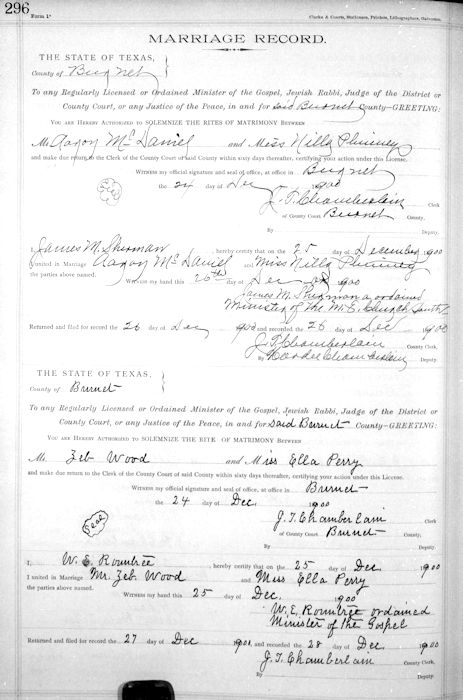 296
Form 1ª
Clarke & Courts, Stationers, Printers, Lithographers, Galveston.
MARRIAGE RECORD.
THE STATE OF TEXAS,
County of Burnet
To any Regularly Licensed or Ordained Minister of the Gospel, Jewish Rabbi, Judge of the District or
County Court, or any Justice of the Peace, in and for said Burnet County—GREETING:
YOU ARE HEREBY AUTHORIZED TO SOLEMNIZE THE RITES OF MATRIMONY BETWEEN
Mr. Aaron McDaniel and Miss Nilla Phinney
and make due return to the Clerk of the County Court of said County within sixty days thereafter, certifying your action under this License.
WITNESS my official signature and seal of office, at office in Burnet
the 24 day of Dec 1900
J. T. Chamberlain Clerk
of County Court Burnet County,
By Deputy.
I, James M. Sherman hereby certify that on the 25 day of December 1900
I united in Marriage Aaron McDaniel and Miss Nilla Phinney
the parties above named. WITNESS my hand this 26th day of Dec 1900
James M. Sherman a ordained
Minister of the M. E. Church South
Returned and filed for record the 26 day of Dec 1900 and recorded the 26 day of Dec 1900
J. T. Chamberlain County Clerk,
By Chamberlain Deputy.
THE STATE OF TEXAS,
County of Burnet
To any Regularly Licensed or Ordained Minister of the Gospel, Jewish Rabbi, Judge of the District or
County Court, or any Justice of the Peace, in and for said Burnet County—GREETING:
YOU ARE HEREBY AUTHORIZED TO SOLEMNIZE THE RITE OF MATRIMONY BETWEEN
Mr. Zeb Wood and Miss Ella Perry
and make due return to the Clerk of the County Court of said County within sixty days thereafter, certifying your action under this License.
WITNESS my official signature and seal of office, at office in Burnet
the 24 day of Dec. 1900
Seal
J. T. Chamberlain Clerk
of County Court Burnet County,
By Deputy.
I, W. E. Rountree hereby certify that on the 25 day of Dec. 1900
I united in Marriage Mr. Zeb Wood and Miss Ella Perry
the parties above named. Witness my hand this 25 day of Dec. 1900
W. E. Rountree ordained
Minister of the Gospel
Returned and filed for record the 27 day of Dec 1900, and recorded the 28 day of Dec. 1900
J. T. Chamberlain County Clerk,
By Deputy.